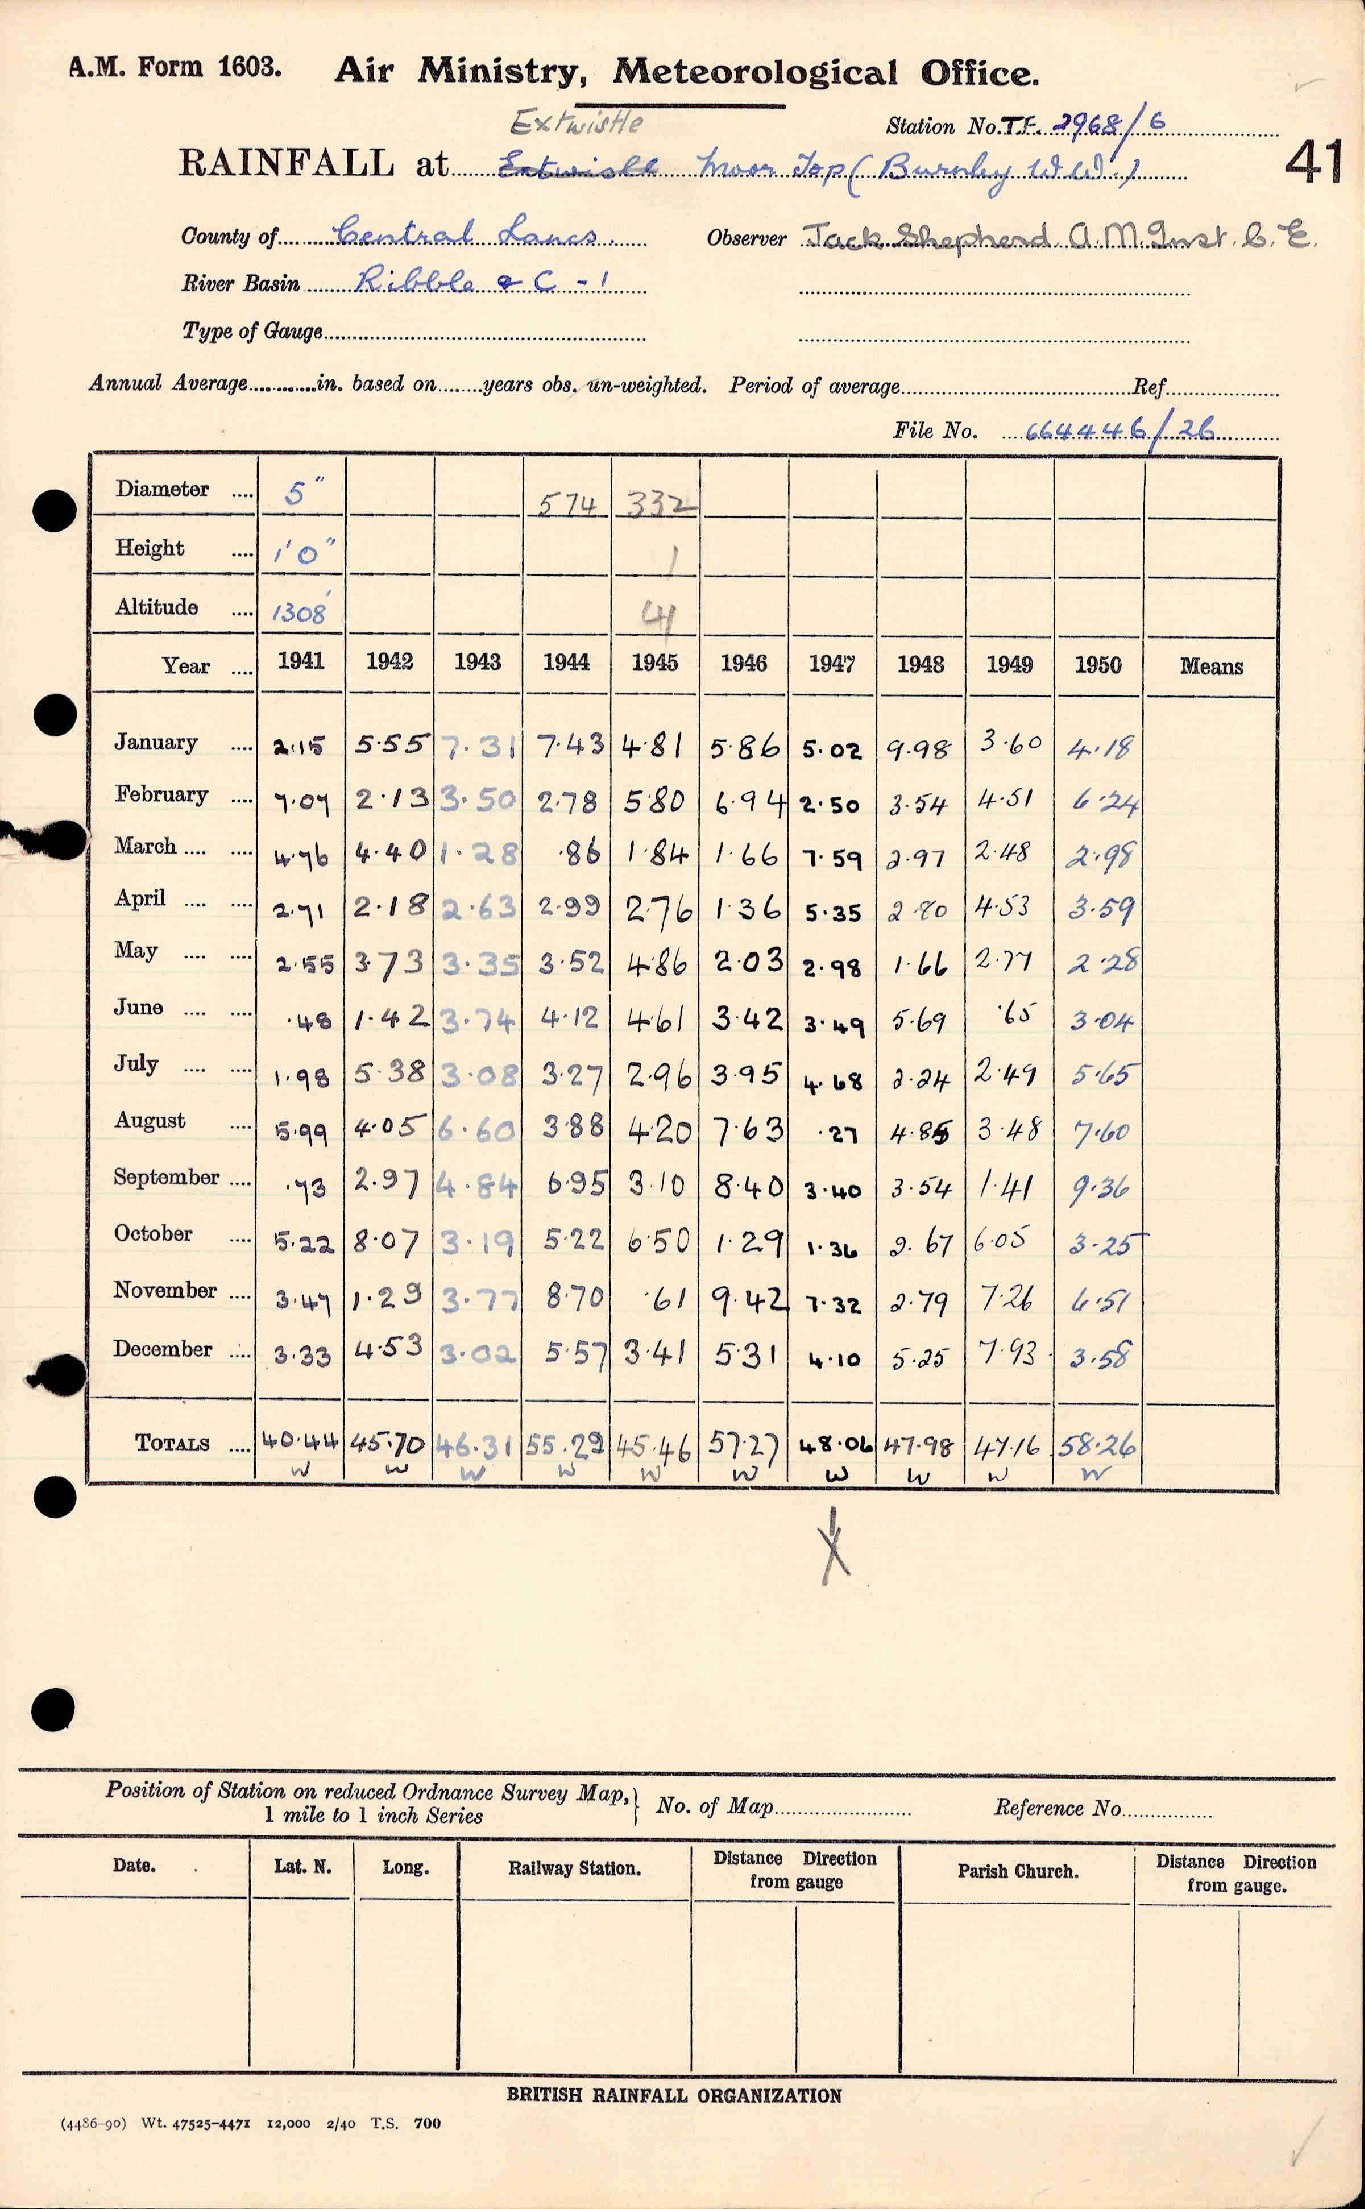 A.M. Form 1603. Air Ministry, Meteorological Office.
Extwistle
Station No. T.F. 2968/6
RAINFALL at Extwisle Moor Top (Burnley W.W.)
41
County of Central Lancs. Observer Jack Shepherd A.M.Inst.C.E.
River Basin Ribble & C - 1
Type of Gauge
Annual Average in. based on years obs. un-weighted. Period of average Ref.
File No. 664446/26
Diameter 5" 574 332
Height 1'0" 1
Altitude 1308' 41
Year 1941 1942 1943 1944 1945 1946 1947 1948 1949 1950 Means
January 2.15 5.55 7.31 7.43 4.81 5.86 5.02 9.98 3.60 4.18
February 7.07 2.13 3.50 2.78 5.80 6.94 2.50 3.54 4.51 6.24
March 4.76 4.40 1.28 .86 1.84 1.66 7.59 2.97 2.48 2.98
April 2.71 2.18 2.63 2.99 2.76 1.36 5.35 2.80 4.53 3.59
May 2.55 3.73 3.35 3.52 4.86 2.03 2.98 1.66 2.77 2.28
June .48 1.42 3.74 4.12 4.61 3.42 3.49 5.69 .65 3.04
July 1.98 5.38 3.08 3.27 2.96 3.95 4.68 2.24 2.49 5.65
August 5.99 4.05 6.60 3.88 4.20 7.63 .27 4.85 3.48 7.60
September .73 2.97 4.84 6.95 3.10 8.40 3.40 3.54 1.41 9.36
October 5.22 8.07 3.19 5.22 6.50 1.29 1.36 2.67 6.05 3.25
November 3.47 1.29 3.77 8.70 .61 9.42 7.32 2.79 7.26 6.51
December 3.33 4.53 3.02 5.57 3.41 5.31 4.10 5.25 7.93 3.58
TOTALS 40.44 45.70 46.31 55.29 45.46 57.27 48.06 47.98 47.16 58.26
w w w w w w w w w w
Position of Station on reduced Ordnance Survey Map, 1 mile to 1 inch Series } No. of Map Reference No.
Date. Lat. N. Long. Railway Station. Distance Direction from gauge Parish Church. Distance Direction from gauge.
BRITISH RAINFALL ORGANIZATION
(4486-90) Wt. 47525-4471 12,000 2/40 T.S. 700